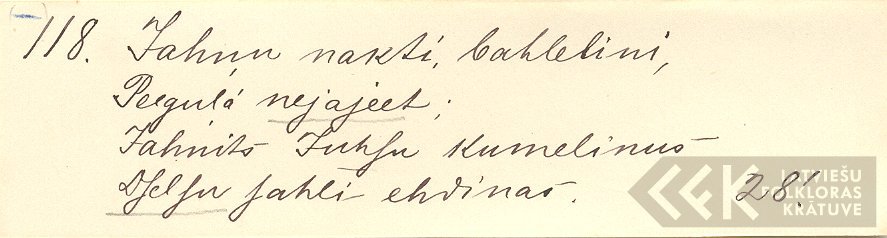 118. Jahņu nakti, bahlelini,
Peegulá nejajeet;
Jahnits Juhsu kumelinus
Dselsu sahli ehdinas. 281
LATVIEŠU
FOLKLORAS
KRĀTUVE